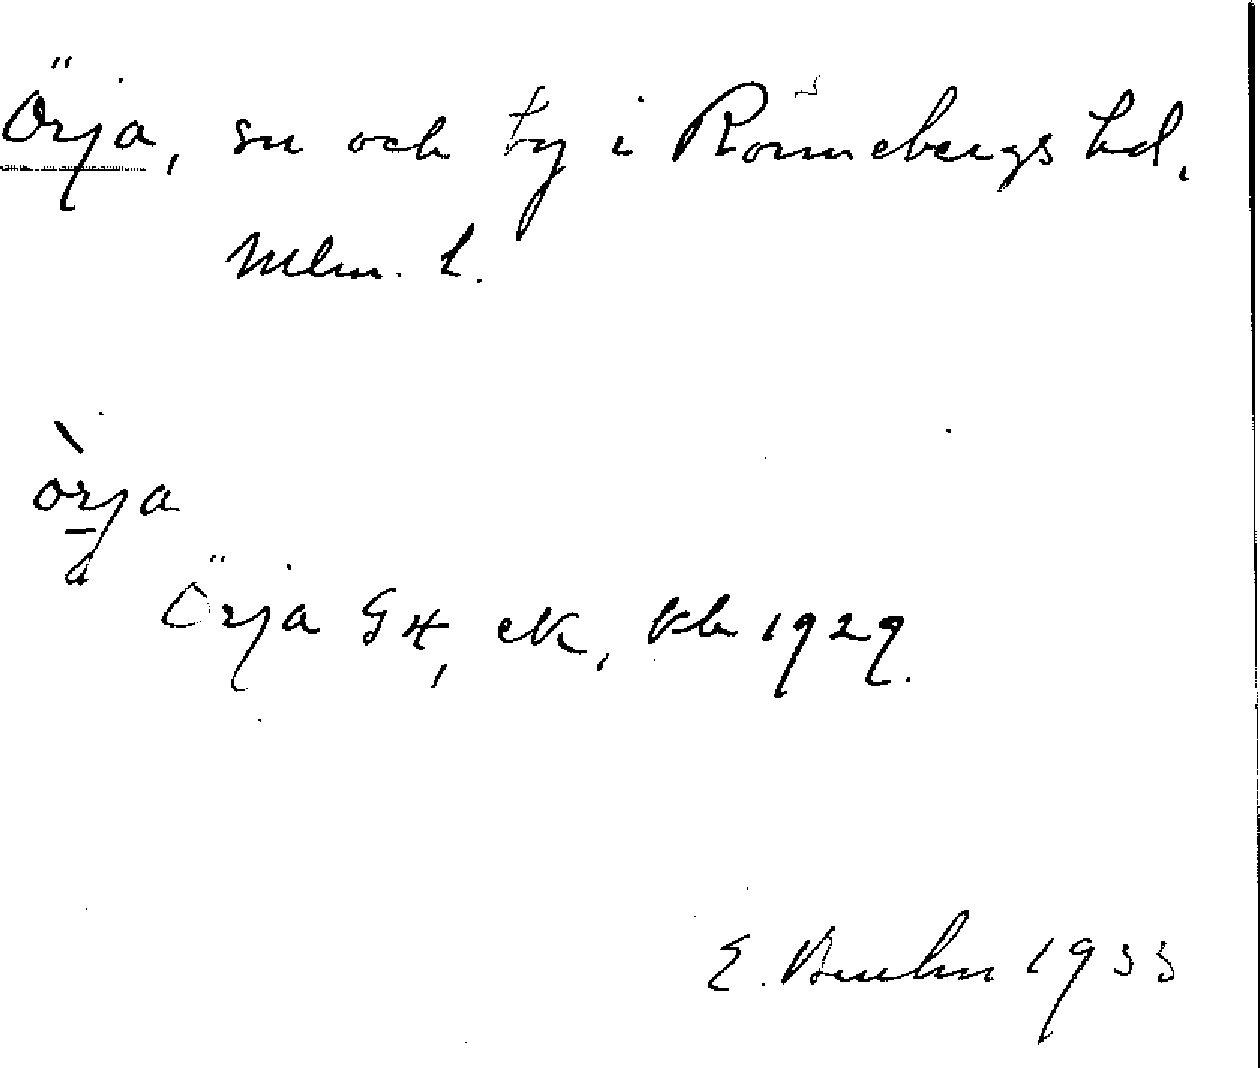 Örja, sn och by i Rönnebergs hd.
Mlm. l.
òrja
Örja G4, eK, kb 1929.
E. Bruhn 1933